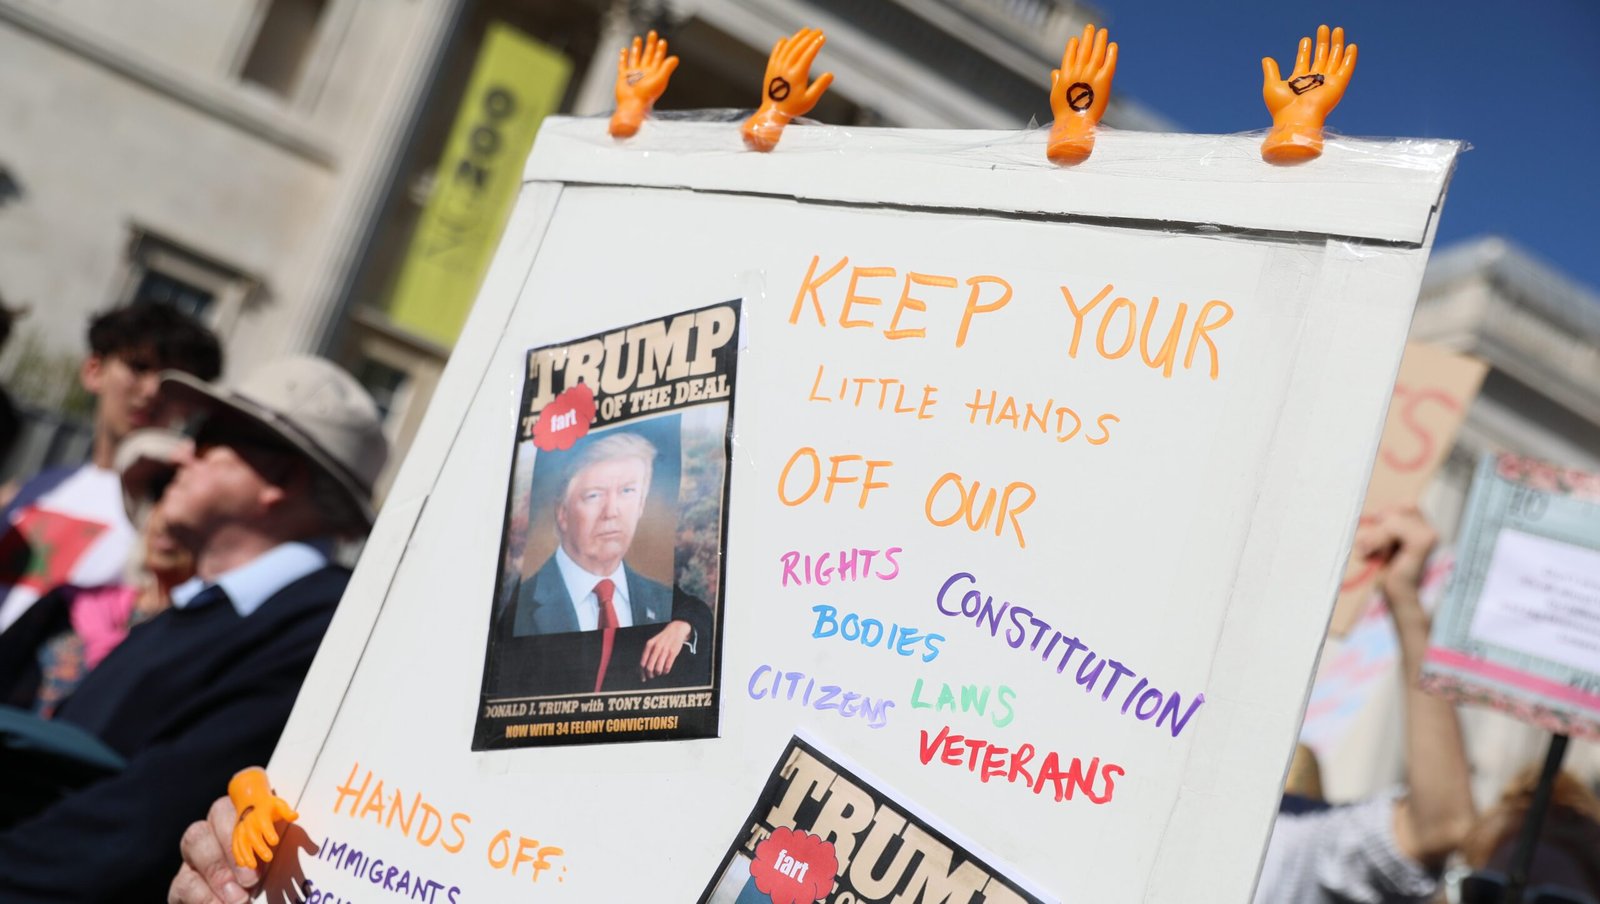 KEEP YOUR
LITTLE HANDS
OFF OUR
RIGHTS
CONSTITUTION
BODIES
CITIZENS
LAWS
VETERANS
TRUMP
fart
OF THE DEAL
DONALD J. TRUMP with TONY SCHWARTZ
NOW WITH 34 FELONY CONVICTIONS!
HANDS OFF:
IMMIGRANTS
TRUMP
fart